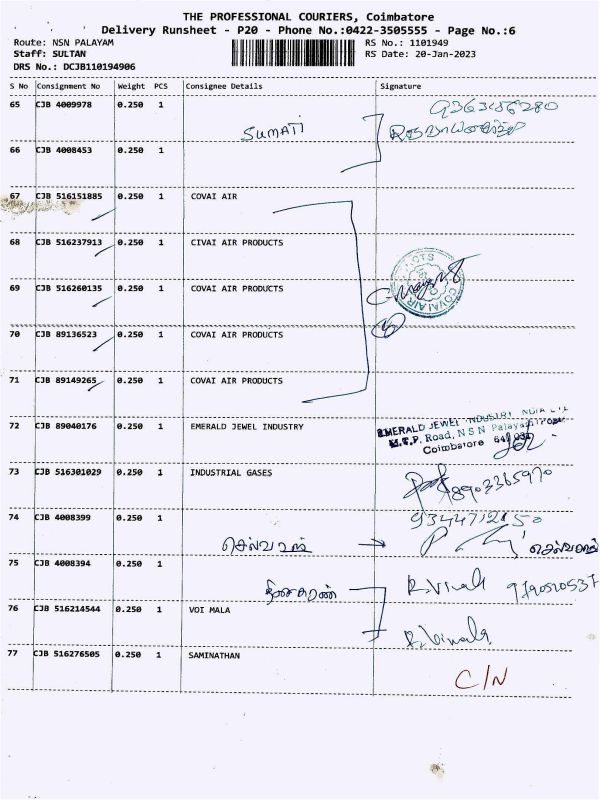 THE PROFESSIONAL COURIERS, Coimbatore
Delivery Runsheet - P20 - Phone No.:0422-3505555 - Page No.:6
Route: NSN PALAYAM RS No.: 1101949
Staff: SULTAN RS Date: 20-Jan-2023
DRS No.: DCJB110194906
S No Consignment No Weight PCS Consignee Details Signature
65 CJB 4009978 0.250 1 9363156280
SUMATI
66 CJB 4008453 0.250 1
67 CJB 516151885 0.250 1 COVAI AIR
68 CJB 516237913 0.250 1 CIVAI AIR PRODUCTS
69 CJB 516260135 0.250 1 COVAI AIR PRODUCTS
COVAI AIR
70 CJB 89136523 0.250 1 COVAI AIR PRODUCTS
71 CJB 89149265 0.250 1 COVAI AIR PRODUCTS
EMERALD JEWEL INDUSTRY INDIA LTD
72 CJB 89040176 0.250 1 EMERALD JEWEL INDUSTRY
M.T.P. Road, N S N Palayam Post
Coimbatore 641 031
73 CJB 516301029 0.250 1 INDUSTRIAL GASES 8903365970
74 CJB 4008399 0.250 1 9344712150
செல்வராஜ் செல்வராஜ்
75 CJB 4008394 0.250 1
தினகரன் R. Vimala
76 CJB 516214544 0.250 1 VOI MALA
R. Vimala
77 CJB 516276505 0.250 1 SAMINATHAN
C/N